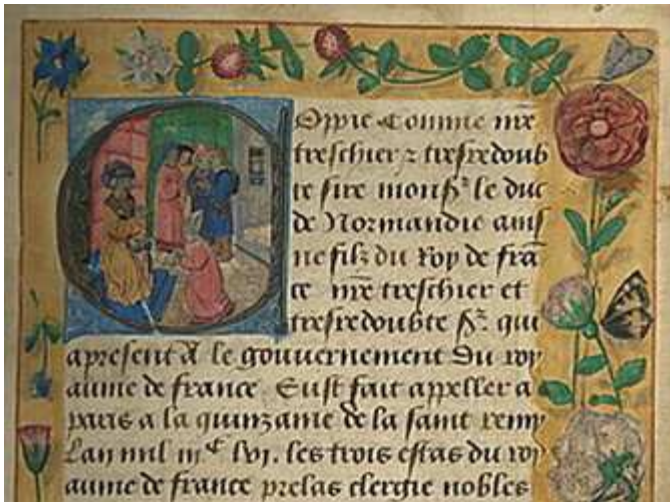 Comme nr̃e
treschier ⁊ tresredoub
te sire monsr̃ le duc
de Normandie ains
ne filz du Roy de frã
ce nr̃e treschier et
tresredoubte sr̃ qui
apresent A le gouvernement du roy
aume de france Eust fait appeller a
paris a la quinzaine de la saint remy
Lan mil iiiᶜ lvi. les trois estas du roy
aume de france prelas clergie nobles